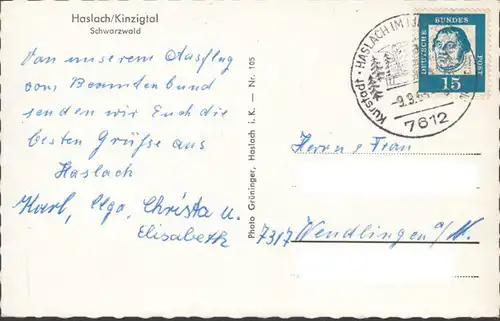 Haslach/Kinzigtal
Schwarzwald
Von unserem Ausflug
vom Beamtenbund
senden wir Euch die
besten Grüße aus
Haslach
Karl, Olga, Christa u.
Elisabeth
Photo Gröninger, Haslach i. K. — Nr. 105
Kurstadt · HASLACH IM
-9.9.
7612
DEUTSCHE BUNDES POST
15
Herrn u Frau
7317 Wendlingen a/N.